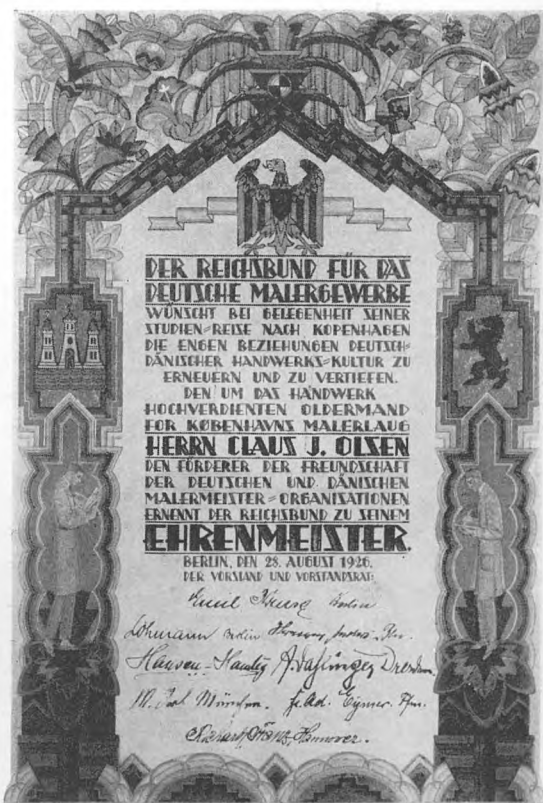 DER REICHSBUND FÜR DAS
DEUTSCHE MALERGEWERBE
WÜNSCHT BEI GELEGENHEIT SEINER
STUDIEN=REISE NACH KOPENHAGEN
DIE ENGEN BEZIEHUNGEN DEUTSCH=
DÄNISCHER HANDWERKS=KULTUR ZU
ERNEUERN UND ZU VERTIEFEN.
DEN UM DAS HANDWERK
HOCHVERDIENTEN OLDERMAND
FOR KØBENHAVNS MALERLAUG
HERRN CLAUS J. OLSEN
DEN FÖRDERER DER FREUNDSCHAFT
DER DEUTSCHEN UND DÄNISCHEN
MALERMEISTER=ORGANISATIONEN
ERNENNT DER REICHSBUND ZU SEINEM
EHRENMEISTER.
BERLIN, DEN 28. AUGUST 1926.
DER VORSTAND UND VORSTANDSRAT:
Emil Kruse Berlin
Lohmann Berlin
Hansen- Dresden.
München. Eymer.
Richard Hannover.